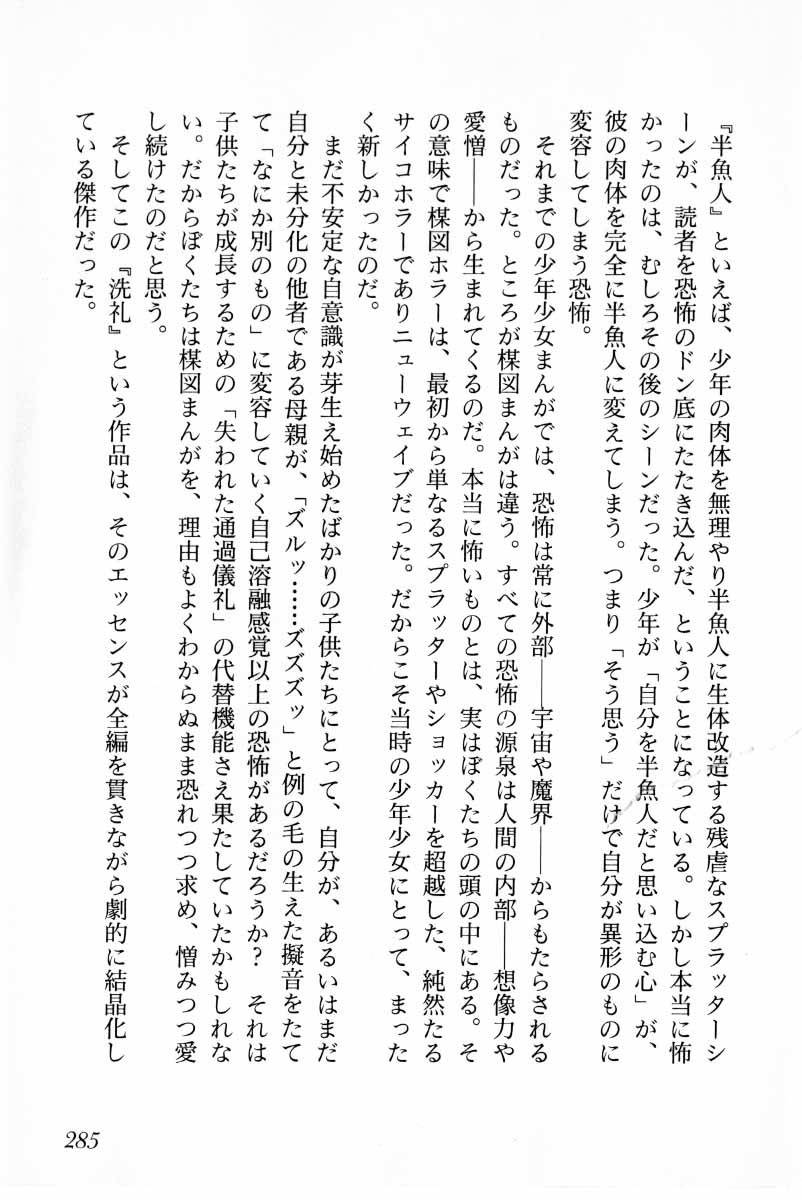 『半魚人』といえば、少年の肉体を無理やり半魚人に生体改造する残虐なスプラッターシ
ーンが、読者を恐怖のドン底にたたき込んだ、ということになっている。しかし本当に怖
かったのは、むしろその後のシーンだった。少年が「自分を半魚人だと思い込む心」が、
彼の肉体を完全に半魚人に変えてしまう。つまり「そう思う」だけで自分が異形のものに
変容してしまう恐怖。
　それまでの少年少女まんがでは、恐怖は常に外部――宇宙や魔界――からもたらされる
ものだった。ところが楳図まんがは違う。すべての恐怖の源泉は人間の内部――想像力や
愛憎――から生まれてくるのだ。本当に怖いものとは、実はぼくたちの頭の中にある。そ
の意味で楳図ホラーは、最初から単なるスプラッターやショッカーを超越した、純然たる
サイコホラーでありニューウェイブだった。だからこそ当時の少年少女にとって、まった
く新しかったのだ。
　まだ不安定な自意識が芽生え始めたばかりの子供たちにとって、自分が、あるいはまだ
自分と未分化の他者である母親が、「ズルッ……ズズズッ」と例の毛の生えた擬音をたて
て「なにか別のもの」に変容していく自己溶融感覚以上の恐怖があるだろうか？　それは
子供たちが成長するための「失われた通過儀礼」の代替機能さえ果たしていたかもしれな
い。だからぼくたちは楳図まんがを、理由もよくわからぬまま恐れつつ求め、憎みつつ愛
し続けたのだと思う。
　そしてこの『洗礼』という作品は、そのエッセンスが全編を貫きながら劇的に結晶化し
ている傑作だった。
285